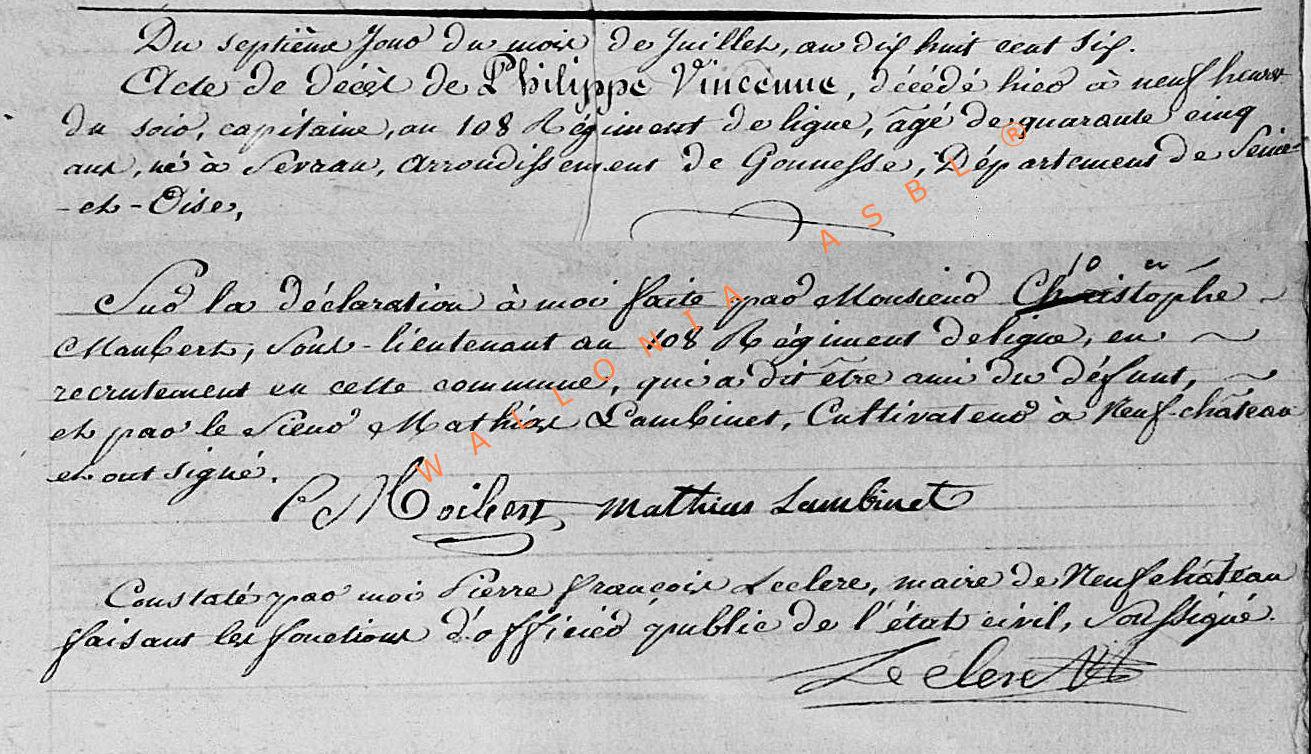 Du septième Jour du mois de Juillet, an dix huit cent six.
Acte de décès de Philippe Vincenne, décédé hier à neuf heures
du soir, capitaine, au 108 Régiment de ligne, âgé de quarante cinq
ans, né à Sevran, arrondissement de Gonnesse, Département de Seine-
-et-Oise,
Sur la déclaration à moi faite par Monsieur Christophe
Maubert, sous-lieutenant au 108 Régiment de ligne, en
recrutement en cette commune, qui a dit être ami du défunt,
et par le Sieur Mathias Lambinet, Cultivateur à Neuf-château
et ont signé.
Mathias Lambinet
Constaté par moi Pierre françois Leclerc, maire de Neufchâteau
faisant les fonctions d'officier public de l'état civil, Soussigné.
Leclerc
WALLONIA ASBL ®